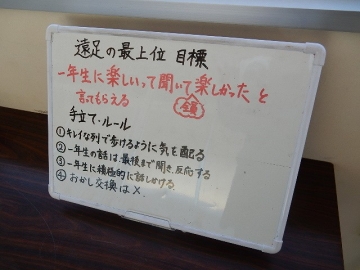 遠足の最上位目標
一年生に楽しいって聞いて楽しかったと
言ってもらえる
全員
手立て・ルール
①キレイな列で歩けるように気を配る
②一年生の話は、最後まで聞き、反応する
③一年生に積極的に話しかける
④おかし交換は×